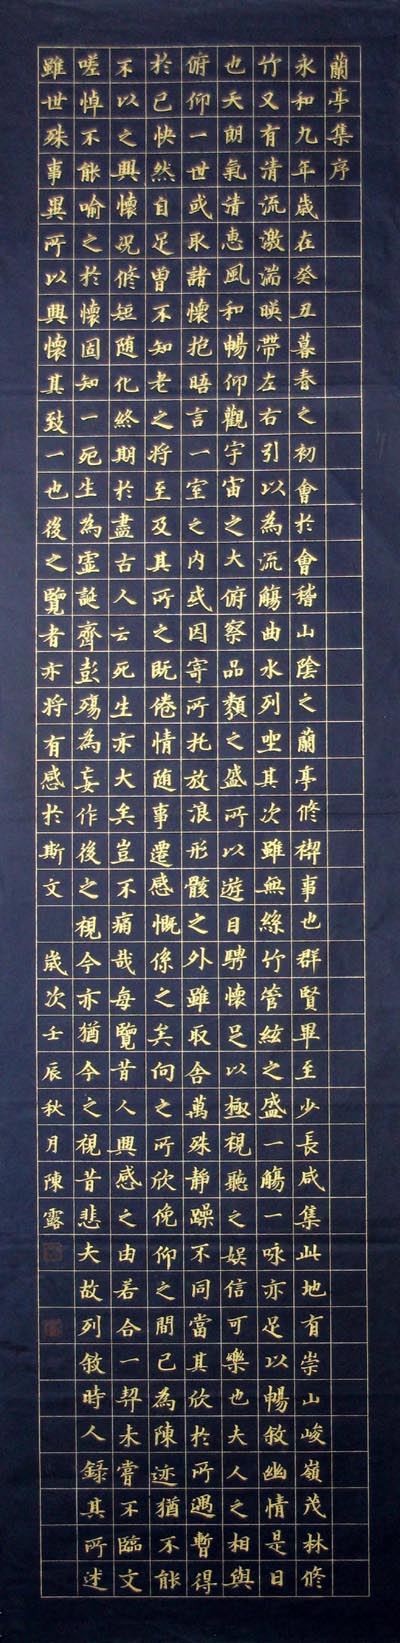 蘭亭集序
永和九年歲在癸丑暮春之初會於會稽山陰之蘭亭修禊事也群賢畢至少長咸集此地有崇山峻嶺茂林修
竹又有清流激湍暎帶左右引以為流觴曲水列坐其次雖無絲竹管絃之盛一觴一咏亦足以暢敘幽情是日
也天朗氣清惠風和暢仰觀宇宙之大俯察品類之盛所以遊目騁懷足以極視聽之娛信可樂也夫人之相與
俯仰一世或取諸懷抱晤言一室之內或因寄所托放浪形骸之外雖取舍萬殊靜躁不同當其欣於所遇暫得
於己快然自足曾不知老之將至及其所之既倦情随事遷感慨係之矣向之所欣俛仰之間已為陳迹猶不能
不以之興懷況修短随化終期於盡古人云死生亦大矣豈不痛哉每覽昔人興感之由若合一契未嘗不臨文
嗟悼不能喻之於懷固知一死生為虛誕齊彭殤為妄作後之視今亦猶今之視昔悲夫故列敘時人錄其所述
雖世殊事異所以興懷其致一也後之覽者亦將有感於斯文 歲次壬辰秋月陳露